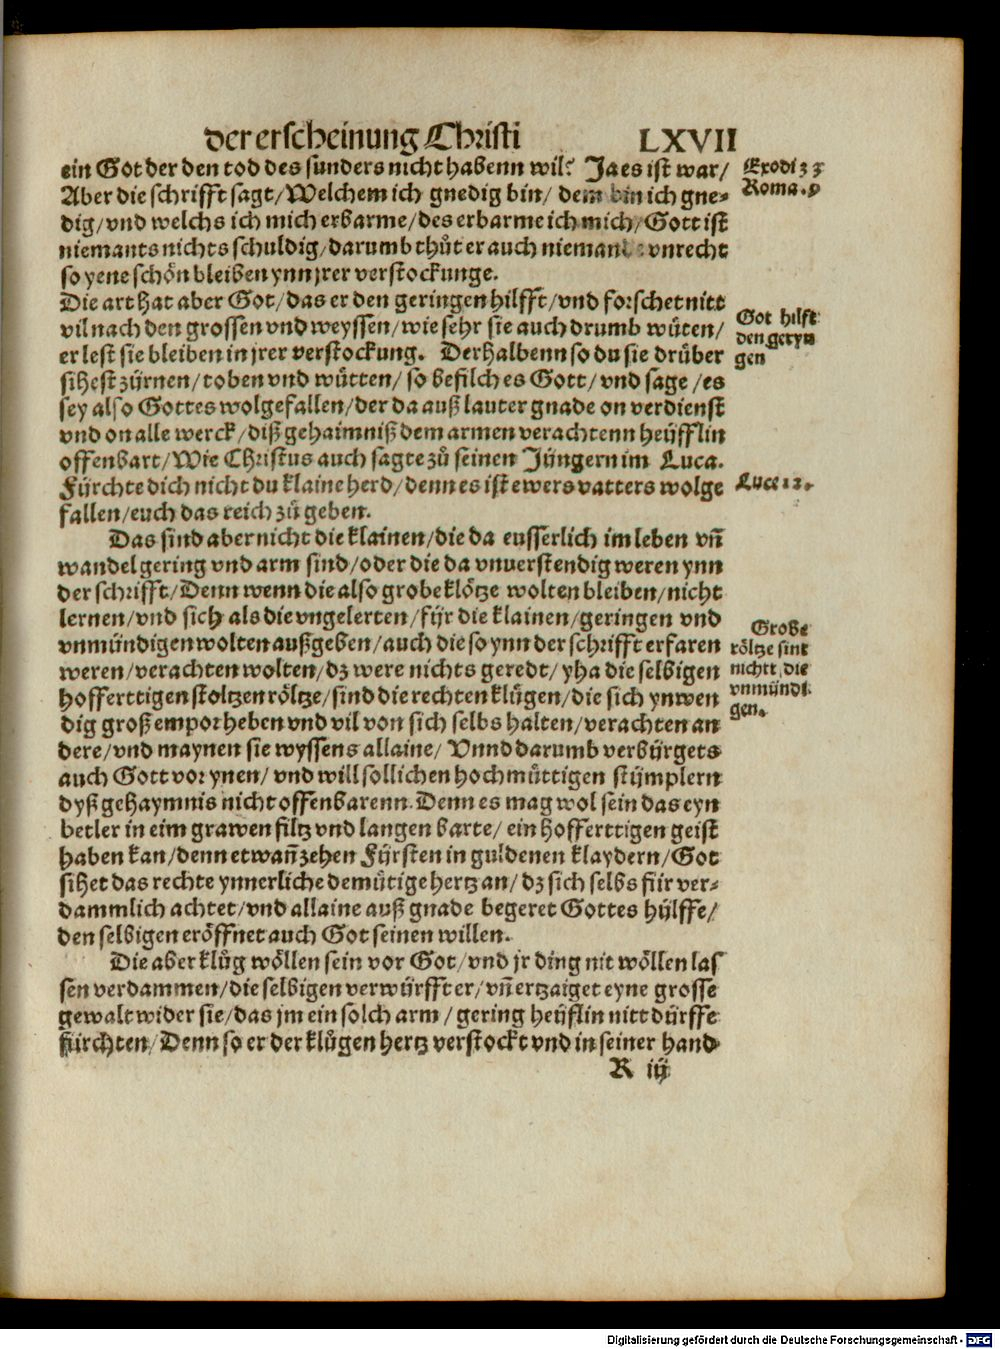 der erscheinung Christi LXVII
ein Got der den tod des sunders nicht habenn wil? Ja es ist war/
Aber die schrifft sagt/Welchem ich gnedig bin/ dem bin ich gne-
dig/vnd welchs ich mich erbarme/des erbarme ich mich/Gott ist
niemants nichts schuldig/darumb thůt er auch vnrecht
so yene schön bleiben ynn jrer verstockunge.
Exodi 33
Roma. 9
Die art hat aber Got/das er den geringen hilfft/vnd forschet nitt
vil nach den grossen vnd weyssen/wie sehr sie auch drumb wüten/
er lest sie bleiben in jrer verstockung. Derhalbenn so du sie drüber
sihest zürnen/toben vnd wütten/ so befilch es Gott/vnd sage /es
sey also Gottes wolgefallen/der da auß lauter gnade on verdienst
vnd on alle werck/diß gehaimniß dem armen verachtenn heüfflin
offenbart/Wie Christus auch sagte zů seinen Jüngern im Luca.
Fürchte dich nicht du klaine herd/denn es ist ewers vatters wolge
fallen/euch das reich zů geben.
Got hilft
den geryn
gen
Luce 12.
Das sind aber nicht die klainen/die da eusserlich im leben vn̄
wandel gering vnd arm sind/oder die da vnuerstendig weren ynn
der schrifft/Denn wenn die also grobe klötze wolten bleiben/nicht
lernen/vnd sich als die vngelerten/für die klainen/geringen vnd
vnmündigen wolten außgeben/auch die so ynn der schrifft erfaren
weren/verachten wolten/dz were nichts geredt/yha die selbigen
hofferttigen stoltzen röltze/sind die rechten klůgen/die sich ynwen
dig groß empor heben vnd vil von sich selbs halten/verachten an
dere/vnd maynen sie wyssens allaine/ Vnnd darumb verbürgets
auch Gott vor ynen/vnd will sollichen hochmüttigen stümplern
dyß gehaymnis nicht offenbarenn. Denn es mag wol sein das eyn
betler in eim grawen filtz vnd langen barte/ein hofferttigen geist
haben kan/denn etwan̄ zehen Fürsten in guldenen klaydern/Got
sihet das rechte ynnerliche demütige hertz an/dz sich selbs für ver-
dammlich achtet/vnd allaine auß gnade begeret Gottes hülffe/
den selbigen eröffnet auch Got seinen willen.
Grobe
röltze sint
nichtt die
vnmündi
gen.
Die aber klůg wöllen sein vor Got/vnd jr ding nit wöllen las
sen verdammen/die selbigen verwürfft er/vn̄ ertzaiget eyne grosse
gewalt wider sie/das jm ein solch arm / gering heüflin nitt dürffe
fürchten/Denn so er der klůgen hertz verstockt vnd in seiner hand
R iij
Digitalisierung gefördert durch die Deutsche Forschungsgemeinschaft - DFG